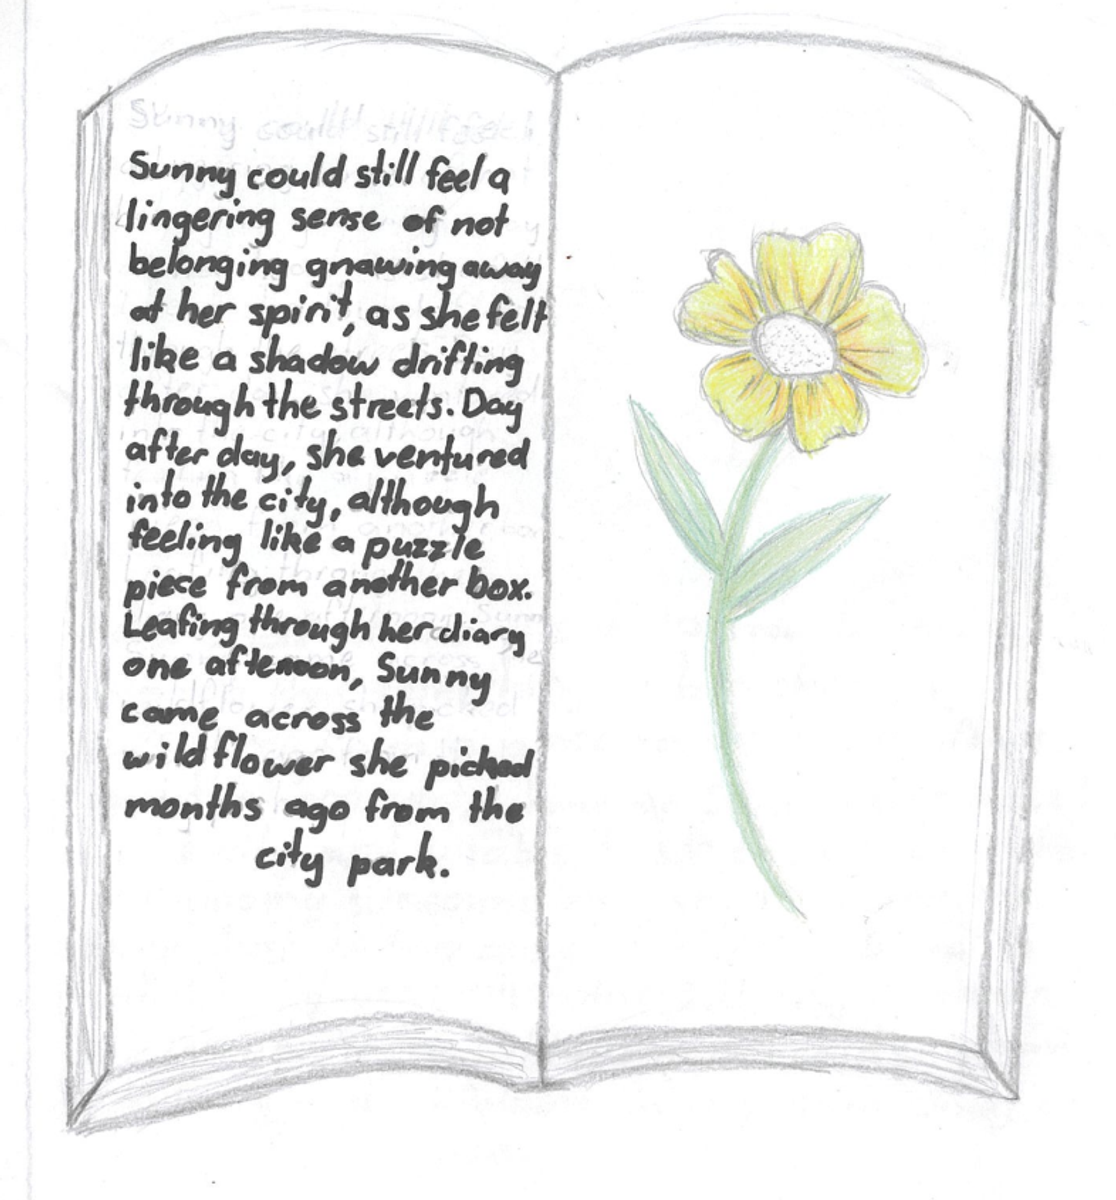 Sunny could still feel a
lingering sense of not
belonging gnawing away
at her spirit, as she felt
like a shadow drifting
through the streets. Day
after day, she ventured
into the city, although
feeling like a puzzle
piece from another box.
Leafing through her diary
one afternoon, Sunny
came across the
wildflower she picked
months ago from the
city park.